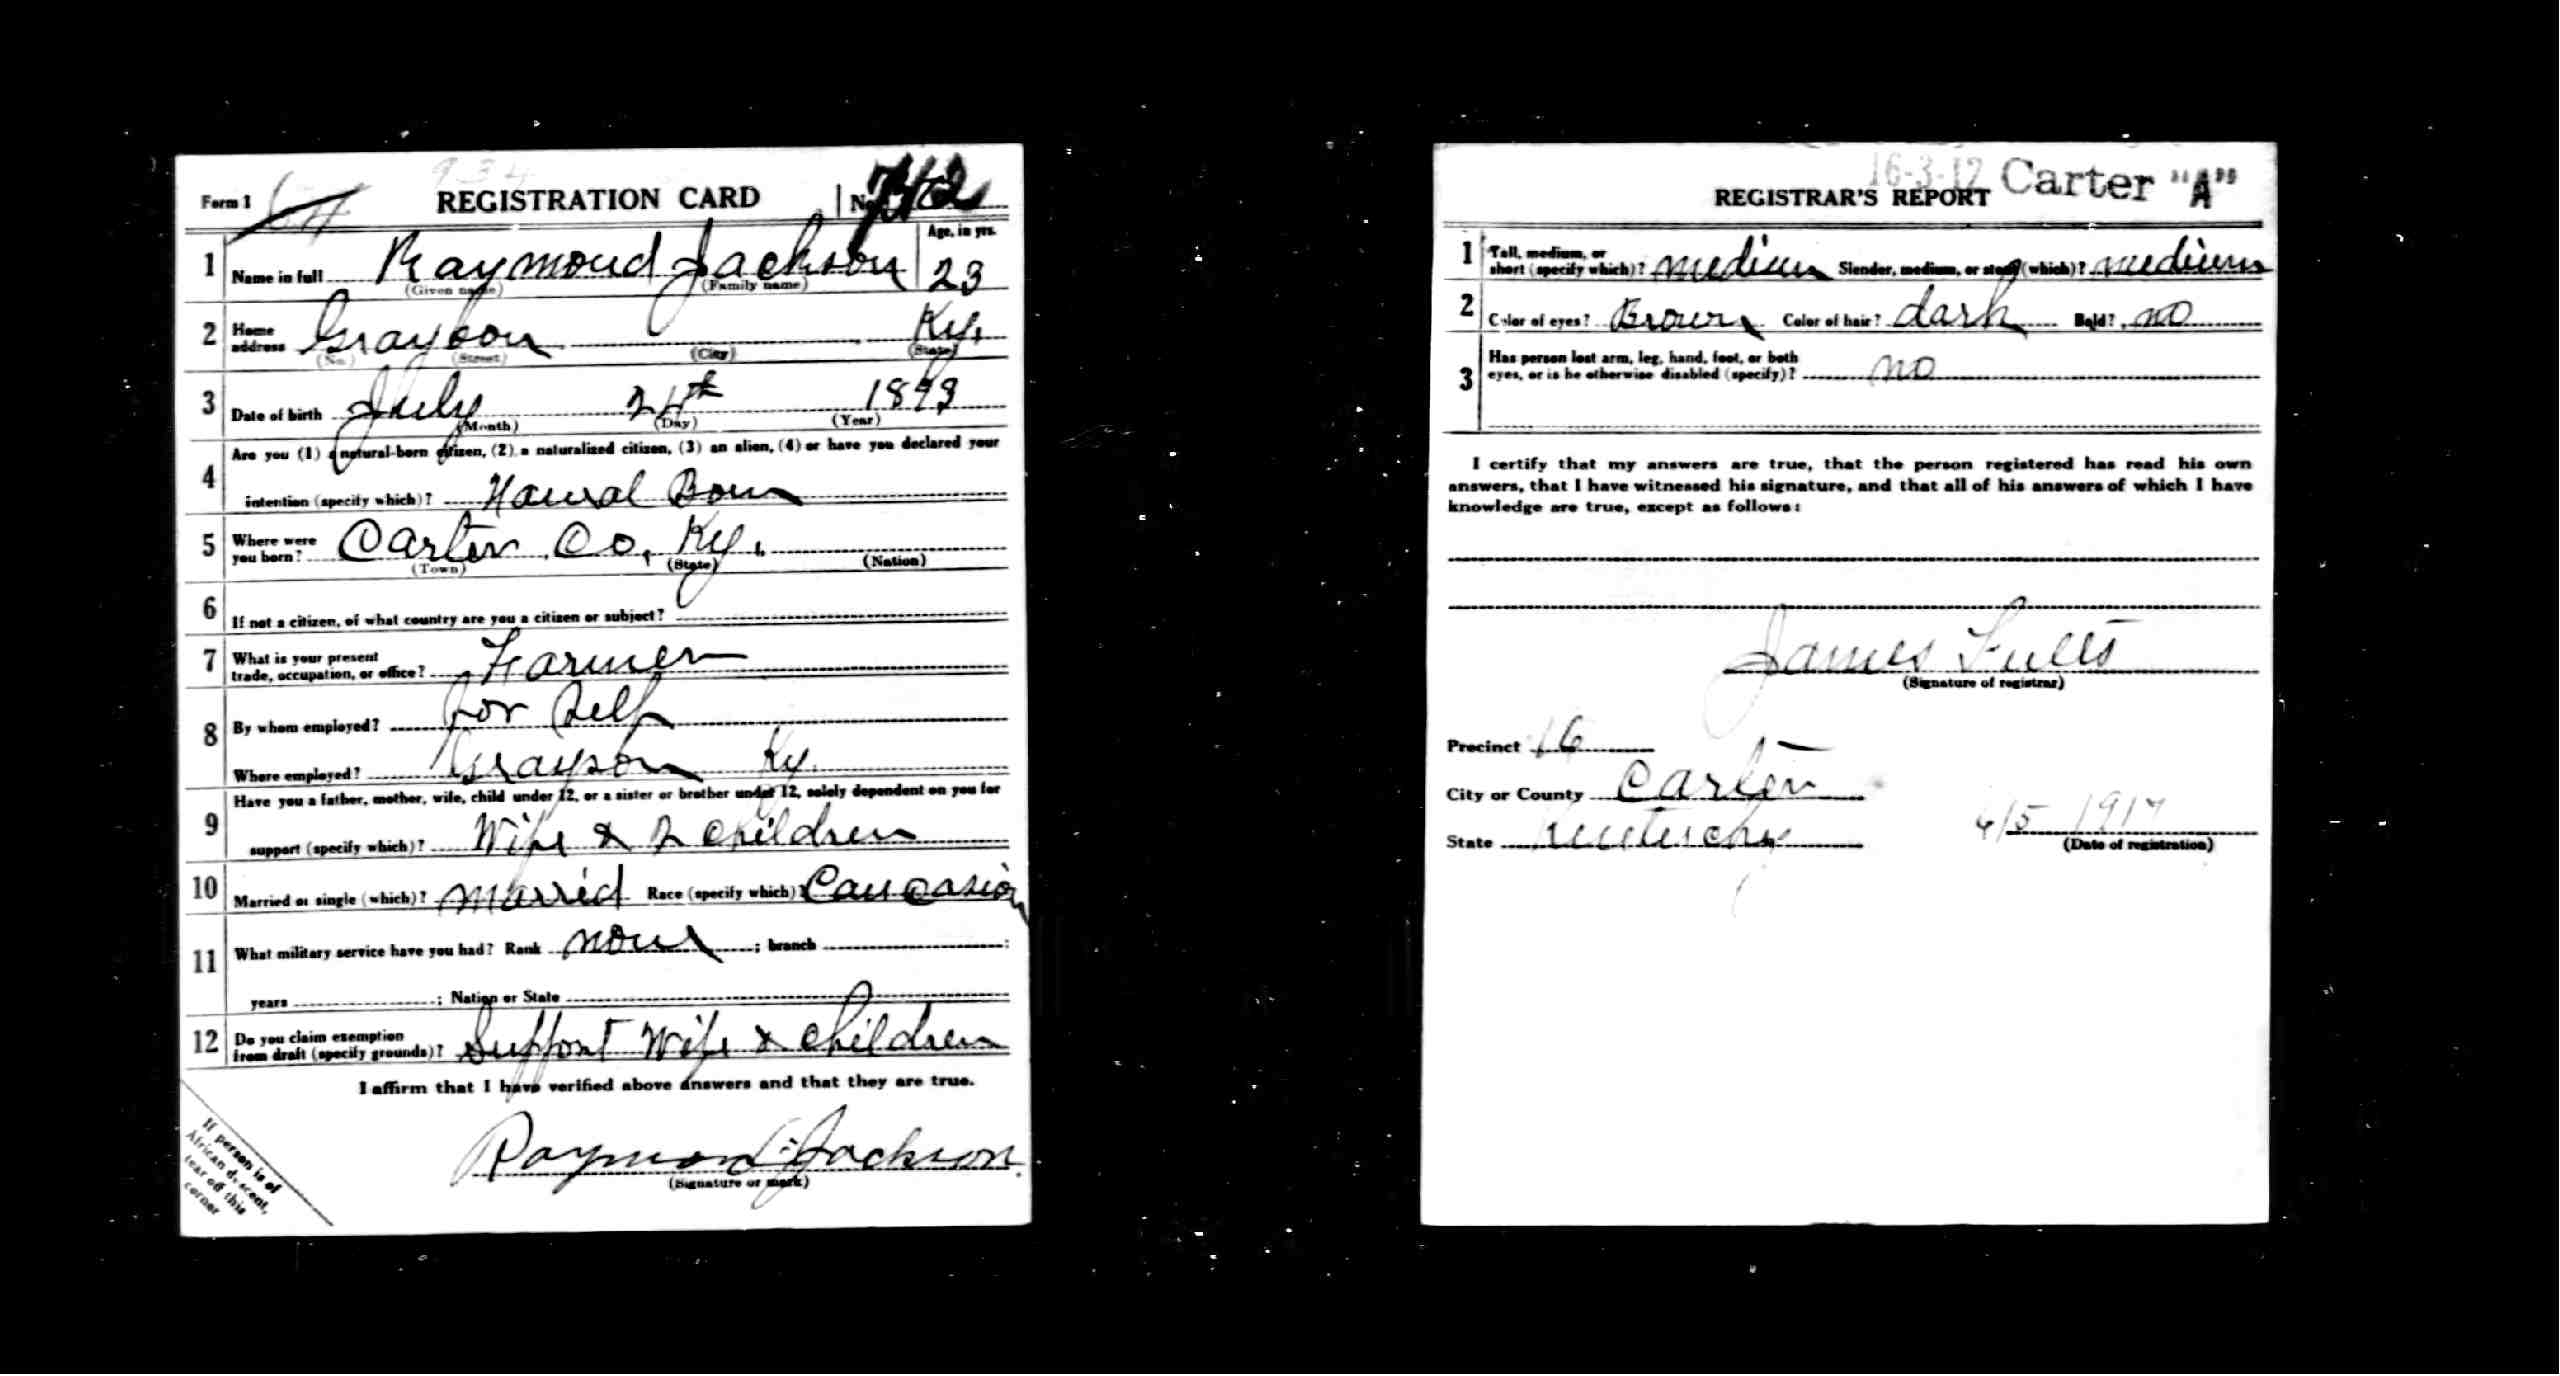 934
Form 1 REGISTRATION CARD No. 742
Age, in yrs.
1 Name in full Raymond Jackson 23
(Given name) (Family name)
2 Home address Grayson Ky.
(No.) (Street) (City) (State)
3 Date of birth July 24th 1893
(Month) (Day) (Year)
4 Are you (1) a natural-born citizen, (2) a naturalized citizen, (3) an alien, (4) or have you declared your
intention (specify which)? Natural Born
5 Where were you born? Carter Co, Ky.
(Town) (State) (Nation)
6 If not a citizen, of what country are you a citizen or subject?
7 What is your present
trade, occupation, or office? Farmer
8 By whom employed? for Self
Where employed? Grayson Ky.
9 Have you a father, mother, wife, child under 12, or a sister or brother under 12, solely dependent on you for
support (specify which)? Wife & 2 children
10 Married or single (which)? Marrid Race (specify which)? Caucasion
11 What military service have you had? Rank none ; branch :
years ; Nation or State
12 Do you claim exemption
from draft (specify grounds)? Support Wife & children
I affirm that I have verified above answers and that they are true.
Raymond Jackson
(Signature or mark)
If person is of
African descent,
tear off this
corner
16-3-12 Carter "A"
REGISTRAR'S REPORT
1 Tall, medium, or
short (specify which)? medium Slender, medium, or stout (which)? medium
2 Color of eyes? Brown Color of hair? dark Bald? no
3 Has person lost arm, leg, hand, foot, or both
eyes, or is he otherwise disabled (specify)? no
I certify that my answers are true, that the person registered has read his own
answers, that I have witnessed his signature, and that all of his answers of which I have
knowledge are true, except as follows:
James Fults
(Signature of registrar)
Precinct 16
City or County Carter
State Kentucky 6/5 1917
(Date of registration)